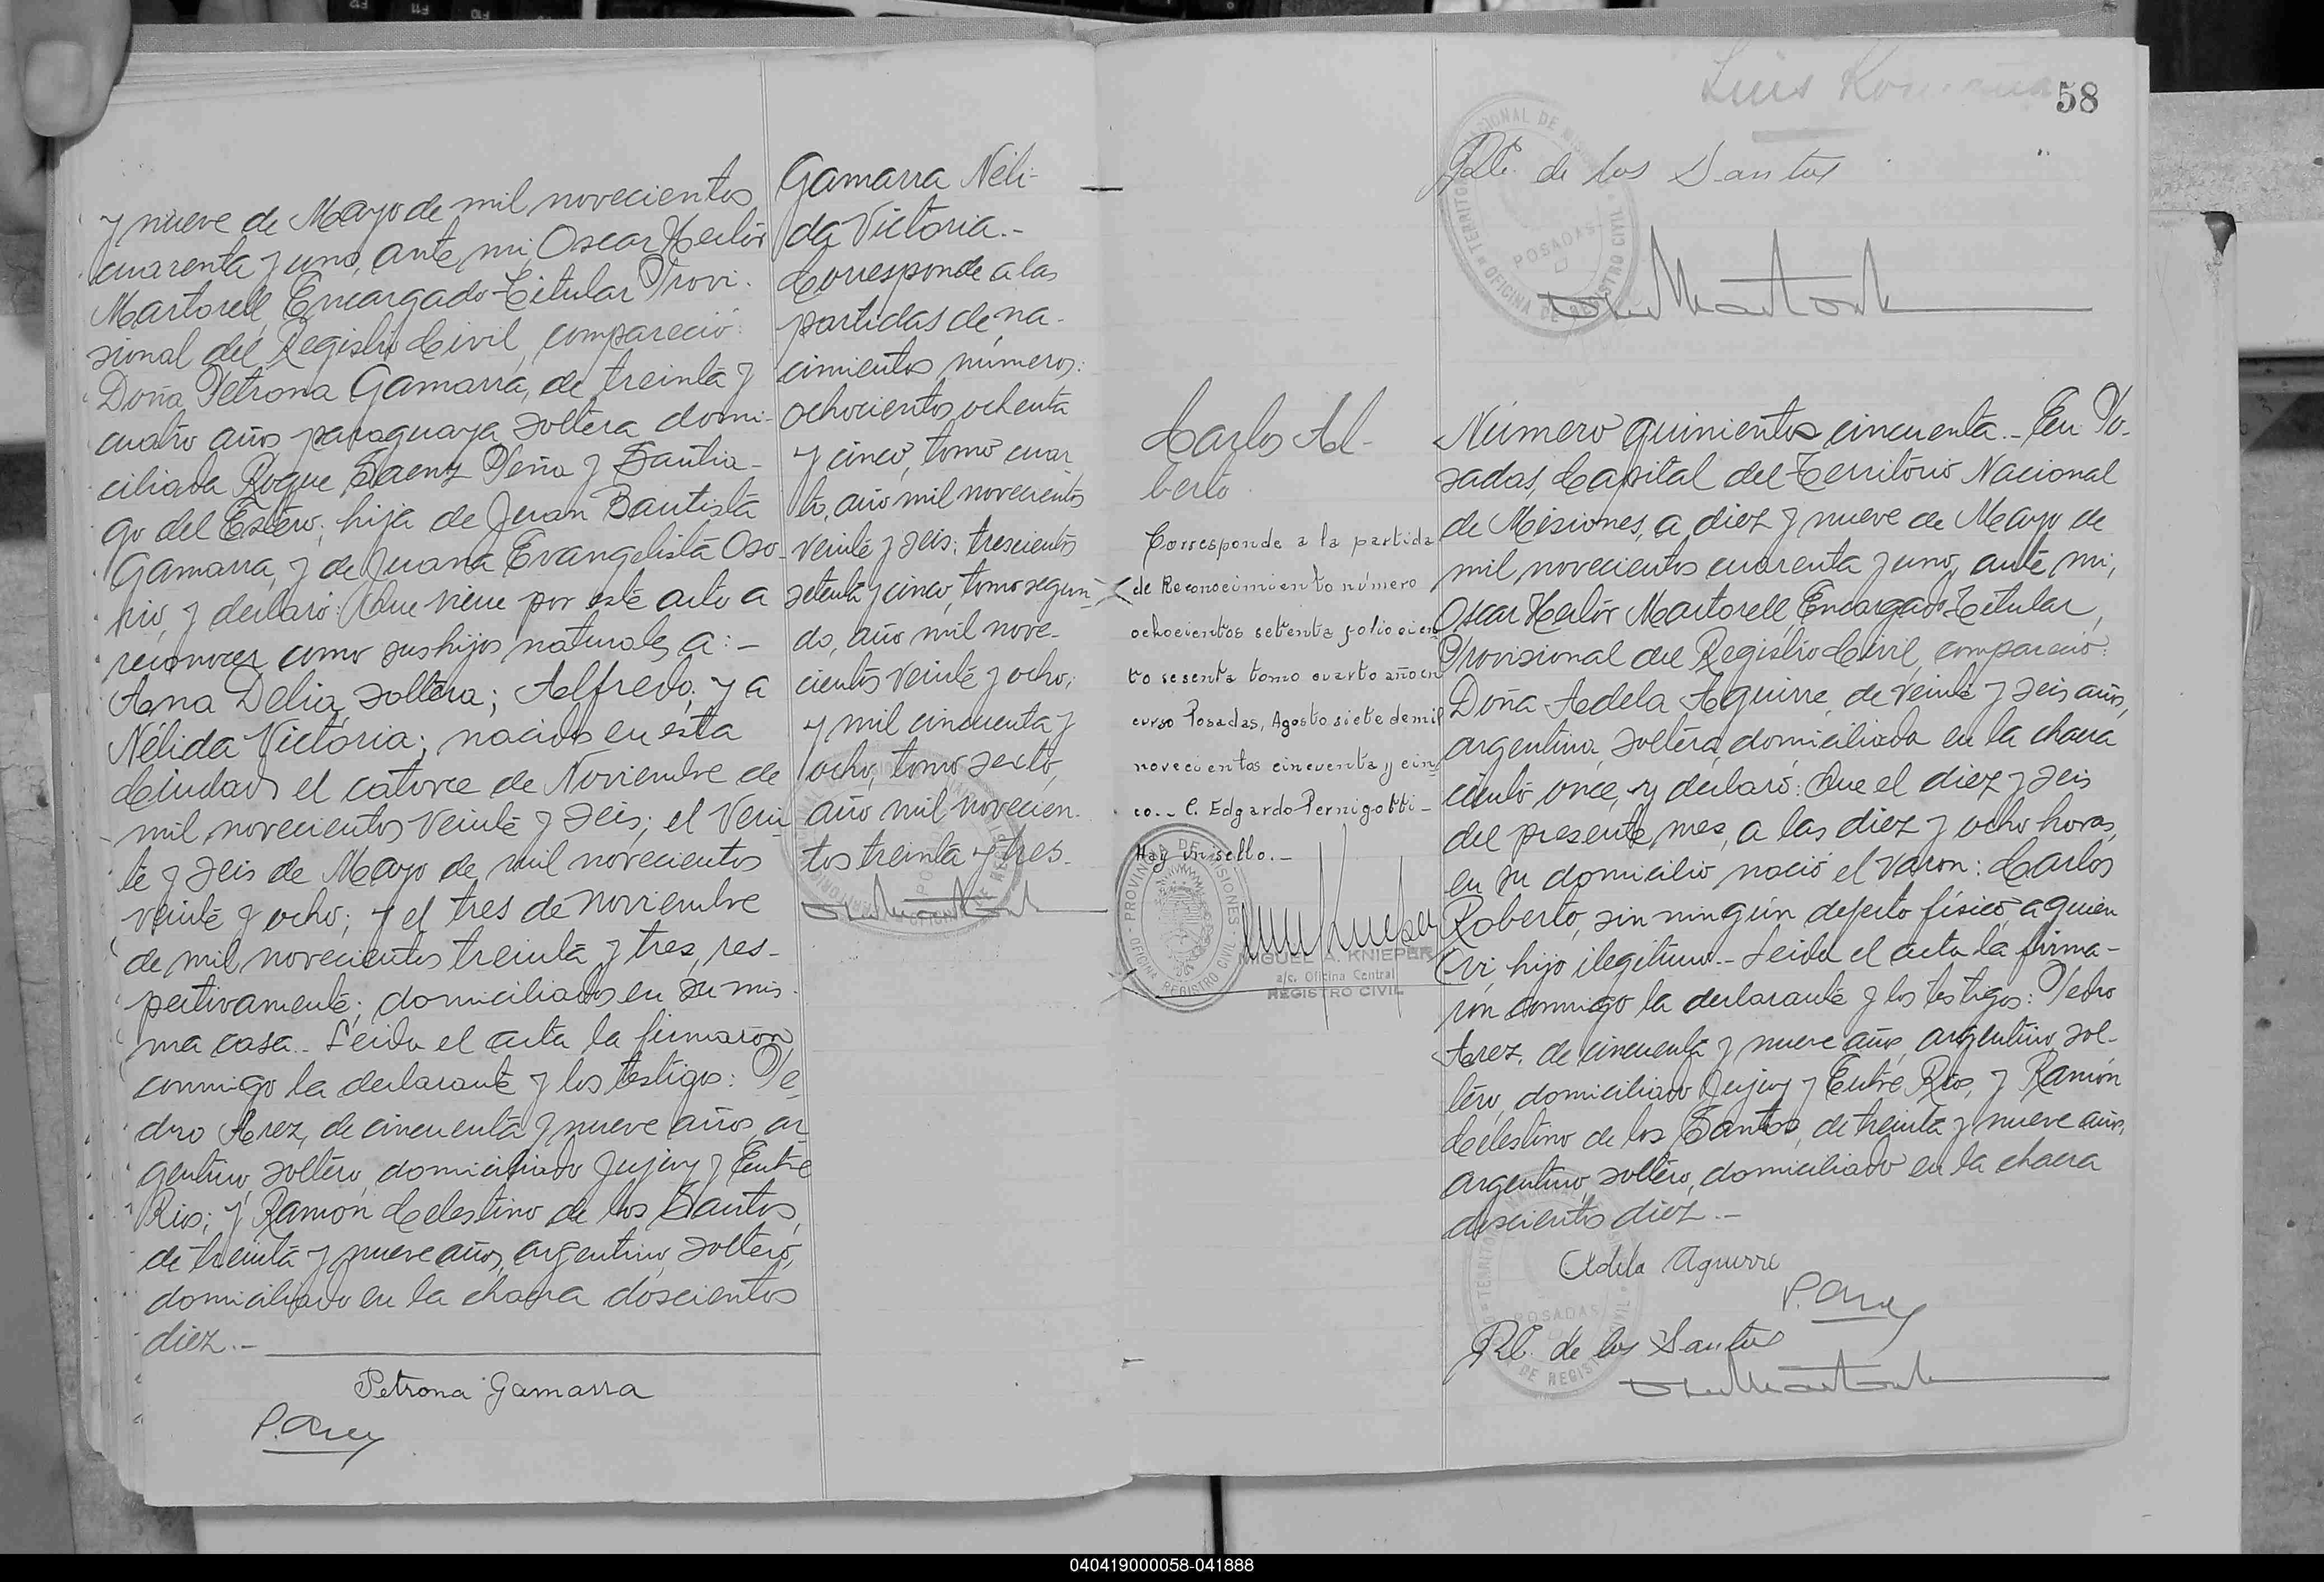 y nueve de Mayo de mil novecientos
cuarenta y uno, ante mi, Oscar Hector
Martorell, Encargado-Titular Provi-
sional del Registro Civil, compareció:
Doña Petrona Gamarra, de treinta y
cuatro años, paraguaya, soltera, domi-
ciliada Roque Saenz Peña y Santia-
go del Estero; hija de Juan Bautista
Gamarra, y de Juana Evangelista Oso-
rio, y declaró: Que viene por este acto a
reconocer como sus hijos naturales a:-
Ana Delia, soltera; Alfredo; y a
Nélida Victoria; nacidos en esta
Ciudad, el catorce de Noviembre de
mil novecientos veinte y seis; el vein
te y seis de Mayo de mil novecientos
veinte y ocho; y el tres de noviembre
de mil novecientos treinta y tres, res-
pectivamente; domiciliados en su mis-
ma casa.- Leida el acta la firmaron
conmigo la declarante y los testigos: Pe-
dro Arez, de cincuenta y nueve años, ar
gentino, soltero, domiciliado Jujuy y Entre
Rios; y Ramón Celestino de los Santos,
de treinta y nueve años, argentino, soltero,
domiciliado en la chacra doscientos
diez.-
Petrona Gamarra
P. Arez
Gamarra Néli-
da Victoria.-
Corresponde a las
partidas de na-
cimientos números:
ochocientos ochenta
y cinco, tomo cuar
to, año mil novecientos
veinte y seis; trescientos
setenta y cinco, tomo segun-
do, año mil nove-
cientos veinte y ocho;
y mil cincuenta y
ocho, tomo sexto,
año mil novecien-
tos treinta y tres.-
Carlos Al-
berto.
Corresponde a la partida
de Reconocimiento número
ochocientos setenta folio cien
to sesenta tomo cuarto año en
curso Posadas, Agosto siete de mil
novecientos cincuenta y cin-
co.- C. Edgardo Pernigotti-
Hay un sello.-
PROVINCIA DE MISIONES
OFICINA REGISTRO CIVIL
MIGUEL A. KNIEPER
a/c. Oficina Central
REGISTRO CIVIL
Luis
58
R.C. de los Santos
POSADAS
OFICINA DE REGISTRO CIVIL
Número quinientos cincuenta.- En Po-
sadas, Capital del Territorio Nacional
de Misiones, a diez y nueve de Mayo de
mil novecientos cuarenta y uno, ante mi,
Oscar Hector Martorell, Encargado-Titular,
Provisional del Registro Civil, compareció:
Doña Adela Aguirre, de veinte y seis años,
argentina, soltera, domiciliada en la chacra
ciento once, y declaró: Que el diez y seis
del presente mes, a las diez y ocho horas,
en su domicilio nació el varon: Carlos
Roberto, sin ningún defecto físico, a quien
vi, hijo ilegitimo.- Leida el acta la firma-
ron conmigo la declarante y los testigos: Pedro
Arez, de cincuenta y nueve años, argentino, sol-
tero, domiciliado Jujuy y Entre Rios, y Ramón
Celestino de los Santos, de treinta y nueve años,
argentino, soltero, domiciliado en la chacra
doscientos diez.-
Adela Aguirre
P. Arez
R.C. de los Santos
POSADAS
040419000058-041888